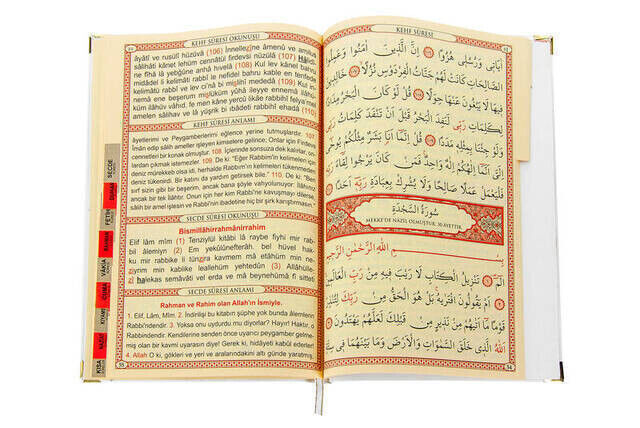 KEHF SÛRESİ OKUNUŞU
âyâtî ve rusulî hüzüvâ (106) İnnellezîne âmenû ve amilus
sâlihâti kânet lehüm cennâtül firdevsi nüzülâ (107) Hâlidî-
ne fîhâ lâ yebğûne anhâ hıvelâ (108) Kul lev kânel bahru
midâdel li kelimâti rabbî le nefidel bahru kable en tenfede
kelimâtü rabbî ve lev ci'nâ bi mislihî mededâ (109) Kul in-
nemâ ene beşerum mislüküm yûhâ ileyye ennemâ ilâhü-
küm ilâhüv vâhıd, fe men kâne yercû likâe rabbihî felya'mel
amelen sâlihav ve lâ yüşrik bi ıbâdeti rabbihî ehadâ (110)
KEHF SÛRESİ ANLAMI
âyetlerimi ve Peygamberlerimi eğlence yerine tutmuşlardır. 107.
İman edip salih ameller işleyen kimselere gelince; Onlar için Firdevs
cennetleri bir konak olmuştur. 108. İçlerinde sonsuza dek kalırlar, on-
lardan çıkmak istemezler. 109. De ki: "Eğer Rabbimin kelimeleri için
deniz mürekkep olsa idi, herhalde Rabbimin kelimeleri tükenmeden
deniz tükenirdi. Bir katını da yardım getirsek bile." 110. De ki: "Ben
sırf sizin gibi bir beşerim, ancak bana şöyle vahyolunuyor: İlâhınız
ancak bir tek ilâhtır. Onun için her kim Rabbine kavuşmayı dilerse
SECDE SÛRESİ OKUNUŞU
Bismillâhirrahmânirrahîm
Elif lâm mîm (1) Tenzîylül kitâbi lâ raybe fiyhi mir rab-
bil âlemiyn (2) Em yekûlûnefterâh, bel hüvel hak-
SECDE SÛRESİ ANLAMI
Rahman ve Rahim olan Allah'ın İsmiyle.
1. Elif, Lâm, Mîm. 2. İndirilişi bu kitabın şüphe yok bunda âlemlerin
Rabb'indendir. 3. Yoksa onu uydurdu mu diyorlar? Hayır! Haktır, o
Rabbindendir. Kendilerine senden önce uyarıcı peygamber gelme-
miş olan bir kavmi uyarasın diye! Gerek ki, hidâyeti kabûl ederler!
4. Allah O ki, gökleri ve yeri ve aralarındakini altı günde yaratmış,
SECDE
FETİH
RAHMAN
VÂKIA
CUMA
KIYAMET
KISA
KEHF SÛRESİ
اٰيَاتِى وَرُسُلِى هُزُوًا اِنَّ الَّذِينَ اٰمَنُوا وَعَمِلُوا
الصَّالِحَاتِ كَانَتْ لَهُمْ جَنَّاتُ الْفِرْدَوْسِ نُزُلًا خَالِدِينَ
فِيهَا لَا يَبْغُونَ عَنْهَا حِوَلًا قُلْ لَوْ كَانَ الْبَحْرُ مِدَادًا
لِكَلِمَاتِ رَبِّى لَنَفِدَ الْبَحْرُ قَبْلَ اَنْ تَنْفَدَ كَلِمَاتُ رَبِّى
وَلَوْ جِئْنَا بِمِثْلِهِ مَدَدًا قُلْ اِنَّمَا اَنَا بَشَرٌ مِثْلُكُمْ يُوحٰى
اِلَىَّ اَنَّمَا اِلٰهُكُمْ اِلٰهٌ وَاحِدٌ فَمَنْ كَانَ يَرْجُوا لِقَاءَ رَبِّهِ
فَلْيَعْمَلْ عَمَلًا صَالِحًا وَلَا يُشْرِكْ بِعِبَادَةِ رَبِّهِ اَحَدًا
سُورَةُ السَّجْدَةِ
MEKKE'DE NAZİL OLMUŞTUR. 30 AYETTİR.
بِسْمِ اللّٰهِ الرَّحْمٰنِ الرَّحِيمِ
الٓمٓ تَنْزِيلُ الْكِتَابِ لَا رَيْبَ فِيهِ مِنْ رَبِّ الْعَالَمِينَ
اَمْ يَقُولُونَ افْتَرٰيهُ بَلْ هُوَ الْحَقُّ مِنْ رَبِّكَ لِتُنْذِرَ
قَوْمًا مَا اَتٰيهُمْ مِنْ نَذِيرٍ مِنْ قَبْلِكَ لَعَلَّهُمْ يَهْتَدُونَ
اَللّٰهُ الَّذِى خَلَقَ السَّمٰوَاتِ وَالْاَرْضَ وَمَا بَيْنَهُمَا فِى